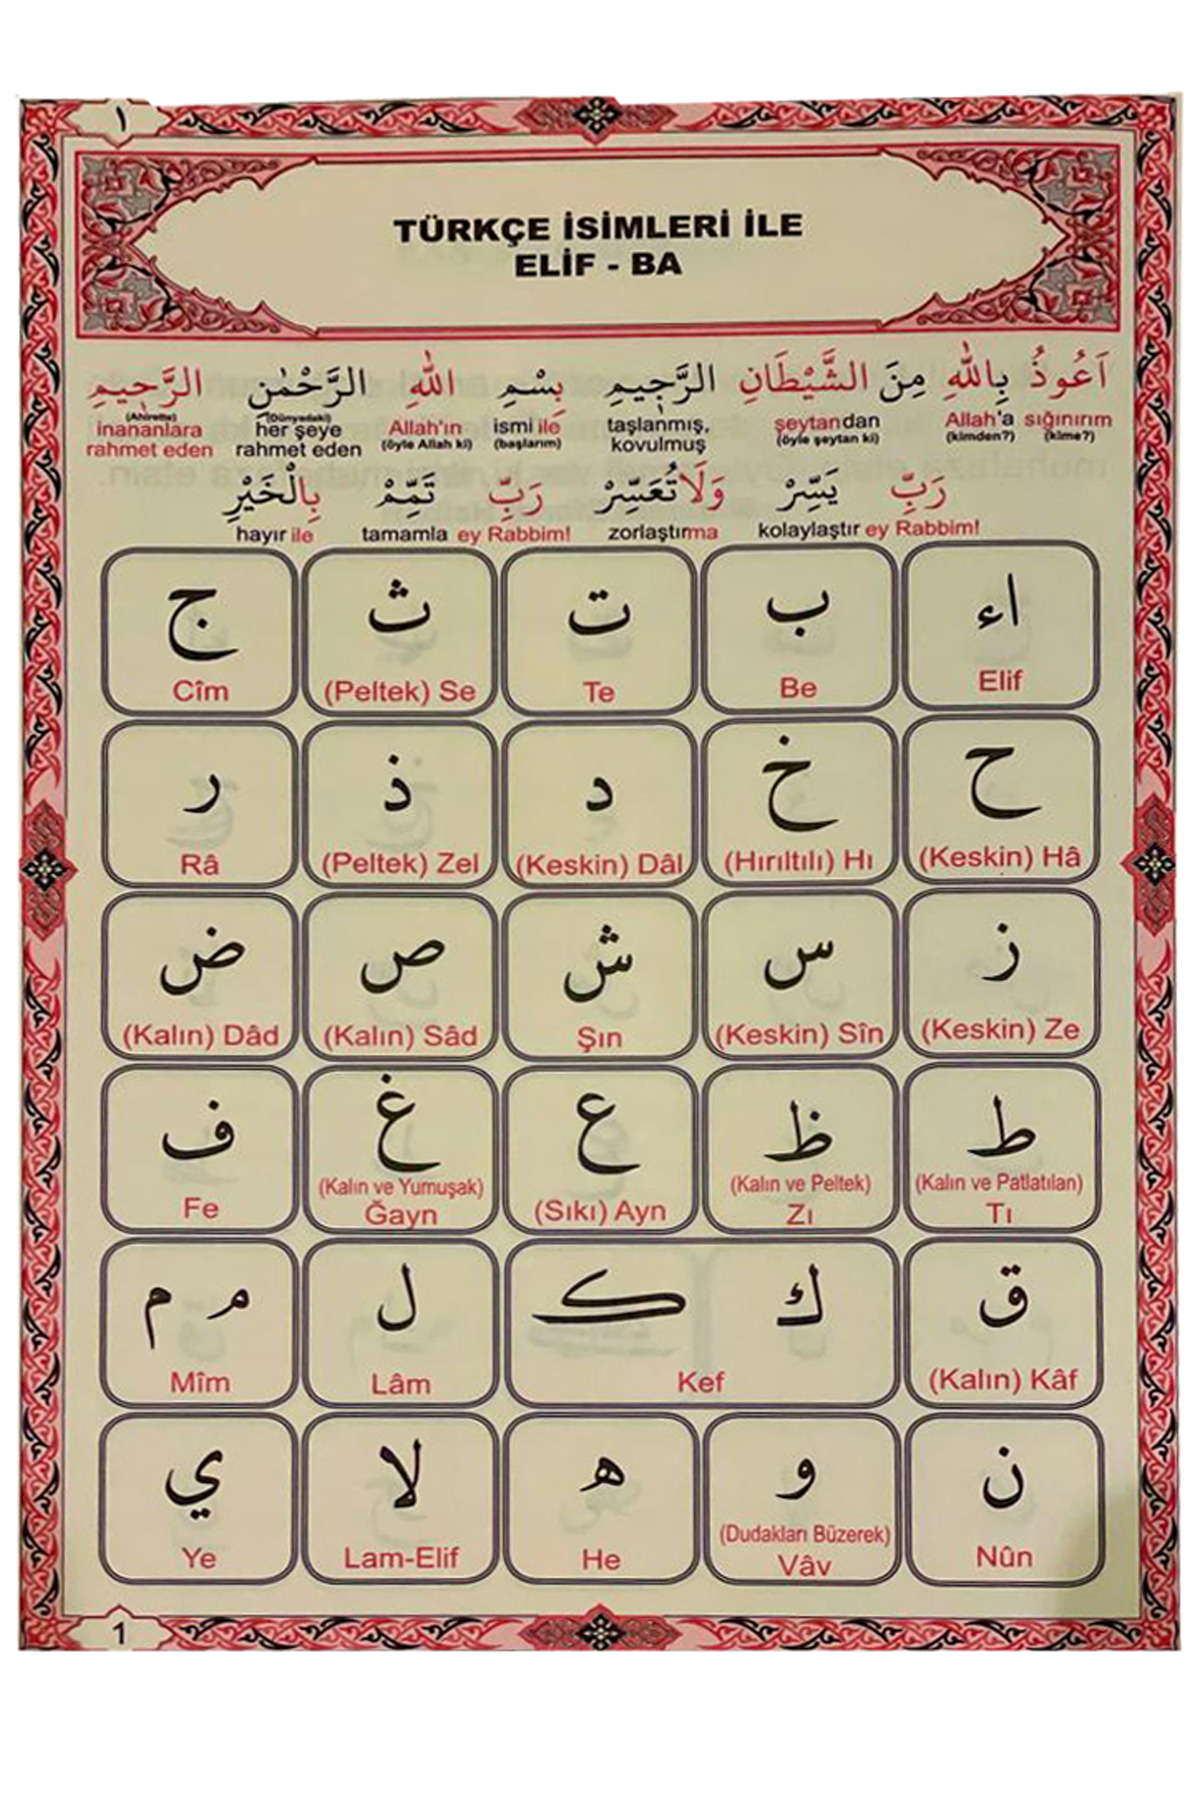 ١
TÜRKÇE İSİMLERİ İLE
ELİF - BA
اَعُوذُ بِاللّٰهِ مِنَ الشَّيْطَانِ الرَّجِيمِ بِسْمِ اللّٰهِ الرَّحْمٰنِ الرَّحِيمِ
sığınırım (kime?) Allah'a (kimden?) şeytandan (öyle şeytan ki) taşlanmış, kovulmuş ismi ile (başlarım) Allah'ın (öyle Allah ki) (Dünyadaki) her şeye rahmet eden (Ahirette) inananlara rahmet eden
رَبِّ يَسِّرْ وَلَا تُعَسِّرْ رَبِّ تَمِّمْ بِالْخَيْرِ
kolaylaştır ey Rabbim! zorlaştırma tamamla ey Rabbim! hayır ile
اء ب ت ث ج
Elif Be Te (Peltek) Se Cîm
ح خ د ذ ر
(Keskin) Hâ (Hırıltılı) Hı (Keskin) Dâl (Peltek) Zel Râ
ز س ش ص ض
(Keskin) Ze (Keskin) Sîn Şın (Kalın) Sâd (Kalın) Dâd
ط ظ ع غ ف
(Kalın ve Patlatılan) Tı (Kalın ve Peltek) Zı (Sıkı) Ayn (Kalın ve Yumuşak) Ğayn Fe
ق ك ک ل م م
(Kalın) Kâf Kef Lâm Mîm
ن و ه لا ي
Nûn (Dudakları Büzerek) Vâv He Lam-Elif Ye
1